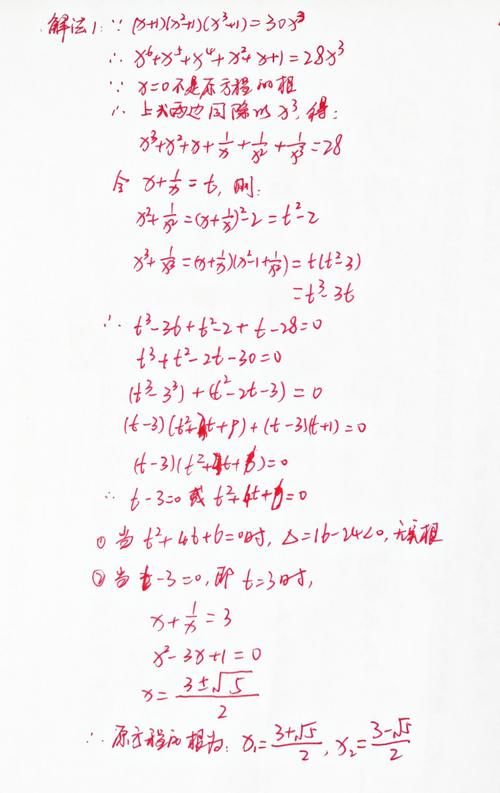 解法1:∵ (x+1)(x²+1)(x³+1)=30x³
∴ x⁶+x⁵+x⁴+x²+x+1=28x³
∵ x=0不是原方程的根
∴ 上式两边同除以x³,得:
x³+x²+x+1/x+1/x²+1/x³=28
令 x+1/x=t,则:
x²+1/x²=(x+1/x)²-2=t²-2
x³+1/x³=(x+1/x)(x²-1+1/x²)=t(t²-3)
=t³-3t
∴ t³-3t+t²-2+t-28=0
t³+t²-2t-30=0
(t³-3³)+(t²-2t-3)=0
(t-3)(t²+3t+9)+(t-3)(t+1)=0
(t-3)(t²+4t+6)=0
∴ t-3=0 或 t²+4t+6=0
① 当 t²+4t+6=0时,△=16-24<0,无实根
② 当 t-3=0,即 t=3时,
x+1/x=3
x²-3x+1=0
x=(3±√5)/2
∴ 原方程的根为:x₁=(3+√5)/2,x₂=(3-√5)/2